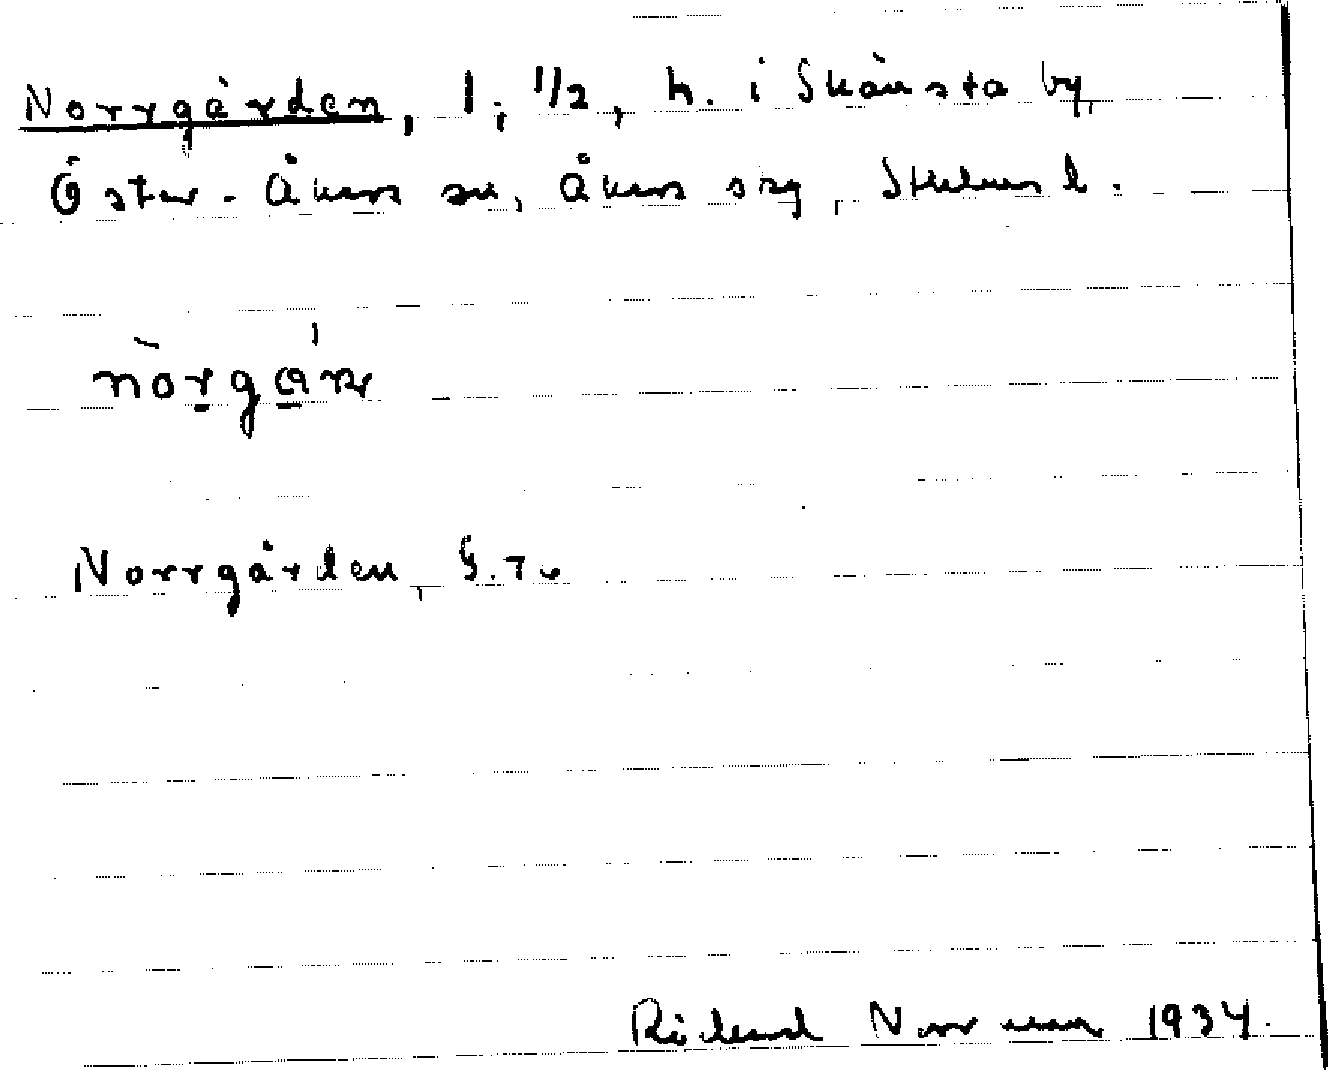 Norrgården, 1, 1/2, h. i Skånsta by,
Öster-Åkers sn, Åkers sky, Sthlms l.
nòrgán
Norrgården, G.
Rickard Norrman 1934.